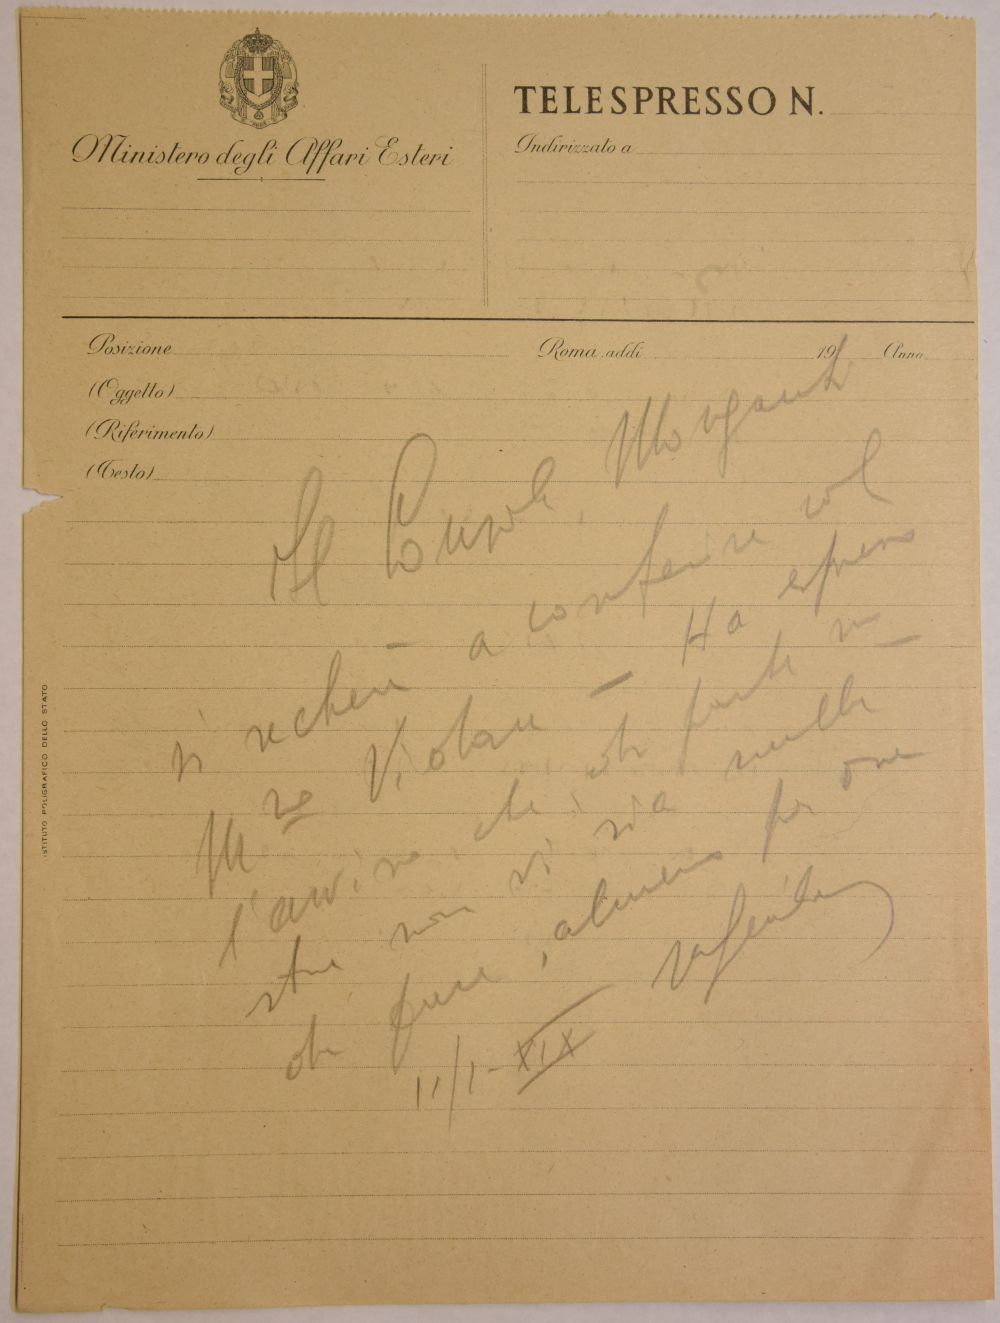 Ministero degli Affari Esteri
TELESPRESSO N.
Indirizzato a
Posizione
Roma, addì 19 Anno
(Oggetto)
(Riferimento)
(Testo)
Il Consol. Morganti
si recherà a conferire col
Mro Violau — Ha espresso
l'avviso che da parte no
stra non vi sia nulla
da fare, almeno per ora
11/1-XIX
ISTITUTO POLIGRAFICO DELLO STATO